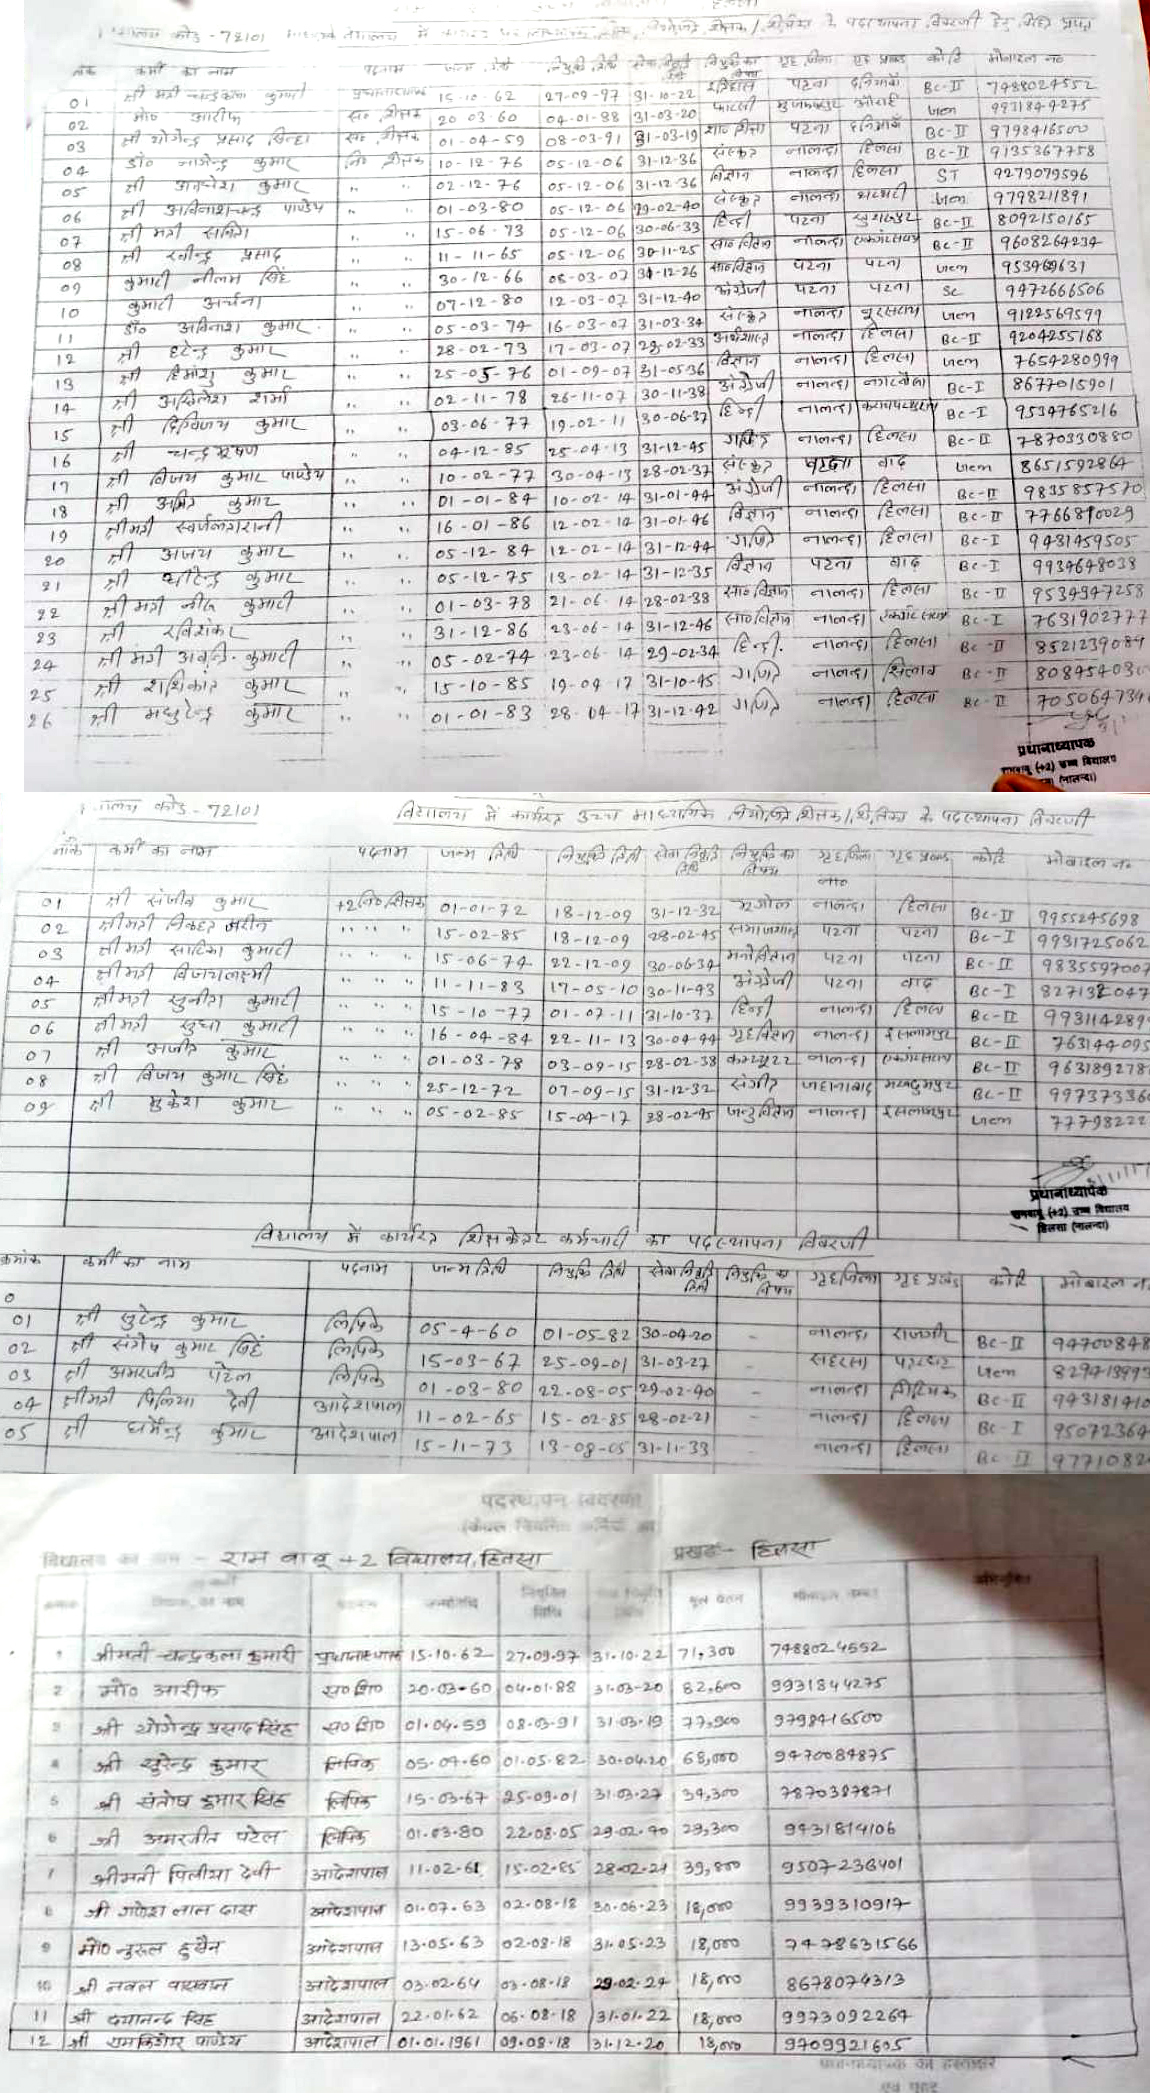 विद्यालय कोड - 72101
कर्मी का नाम पदनाम जन्म तिथि नियुक्ति तिथि गृह जिला गृह प्रखंड कोटि मोबाइल नं०
01 श्री मती चन्द्रकला कुमारी प्रधानाध्यापक 15-10-62 27-09-97 31-10-22 इतिहास पटना दनियावाँ BC-II 7488024552
02 मो० आरीफ स० शिक्षक 20-03-60 04-01-88 31-03-20 फारसी मुजफ्फरपुर औराई Gem 9931844275
03 श्री योगेन्द्र प्रसाद सिन्हा स० शिक्षक 01-04-59 08-03-91 31-03-19 शा० शिक्षा पटना दनियावाँ BC-II 9798416500
04 डॉ० नागेन्द्र कुमार नि० शिक्षक 10-12-76 05-12-06 31-12-36 संस्कृत नालन्दा हिलसा BC-II 9135367758
05 श्री अवधेश कुमार " " 02-12-76 05-12-06 31-12-36 विज्ञान नालन्दा हिलसा ST 9279079596
06 श्री अविनाशचन्द्र पाण्डेय " " 01-03-80 05-12-06 29-02-40 संस्कृत नालन्दा थरथरी Gem 9798211891
07 श्री मती सबिता " " 15-06-73 05-12-06 30-06-33 हिन्दी पटना खुशरूपुर BC-II 8092150165
08 श्री रवीन्द्र प्रसाद " " 11-11-65 05-12-06 30-11-25 सा० विज्ञान नालन्दा एकंगरसराय BC-II 9608264234
09 कुमारी नीलम सिंह " " 30-12-66 08-03-07 31-12-26 सा० विज्ञान पटना पटना Gem 953469631
10 कुमारी अर्चना " " 07-12-80 12-03-07 31-12-40 अंग्रेजी पटना पटना SC 9472666506
11 डॉ० अविनाश कुमार " " 05-03-74 16-03-07 31-03-34 संस्कृत नालन्दा नूरसराय Gem 9122569599
12 श्री हरेन्द्र कुमार " " 28-02-73 17-03-07 28-02-33 अर्थशास्त्र नालन्दा हिलसा BC-II 9204255168
13 श्री हिमांशु कुमार " " 25-05-76 01-09-07 31-05-36 विज्ञान नालन्दा हिलसा Gem 7654280999
14 श्री अखिलेश शर्मा " " 02-11-78 26-11-07 30-11-38 अंग्रेजी नालन्दा नगरनौसा BC-I 8677015901
15 श्री दिग्विजय कुमार " " 03-06-77 19-02-11 30-06-37 हिन्दी नालन्दा करायपरशुराय BC-I 9534765216
16 श्री चन्द्र भूषण " " 04-12-85 25-04-13 31-12-45 गणित नालन्दा हिलसा BC-II 7870330880
17 श्री विजय कुमार पाण्डेय " " 10-02-77 30-04-13 28-02-37 संस्कृत पटना बाढ़ Gem 8651592864
18 श्री अमित कुमार " " 01-01-84 10-02-14 31-01-44 अंग्रेजी नालन्दा हिलसा BC-II 9835857570
19 श्रीमती स्वर्णलतारानी " " 16-01-86 12-02-14 31-01-46 विज्ञान नालन्दा हिलसा BC-II 7766810029
20 श्री अजय कुमार " " 05-12-84 12-02-14 31-12-44 गणित नालन्दा हिलसा BC-I 9431459505
21 श्री धीरेन्द्र कुमार " " 05-12-75 13-02-14 31-12-35 विज्ञान पटना बाढ़ BC-I 9934648038
22 श्री मती नीलू कुमारी " " 01-03-78 21-06-14 28-02-38 सा० विज्ञान नालन्दा हिलसा BC-II 9534347258
23 श्री रविशंकर " " 31-12-86 23-06-14 31-12-46 सा० विज्ञान नालन्दा एकंगरसराय BC-I 7631902777
24 श्री मती अवन्ति कुमारी " " 05-02-74 23-06-14 29-02-34 हिन्दी नालन्दा हिलसा BC-II 8521239084
25 श्री शशिकांत कुमार " " 15-10-85 19-04-17 31-10-45 गणित नालन्दा सिलाव BC-II 808454030
26 श्री मधुरेन्द्र कुमार " " 01-01-83 28-04-17 31-12-42 गणित नालन्दा हिलसा BC-II 705064734
प्रधानाध्यापक
रामबाबू (+2) उच्च विद्यालय
(नालन्दा)
कोड - 72101 विद्यालय में कार्यरत उच्च माध्यमिक नियोजित शिक्षक/शिक्षिका के पदस्थापना विवरणी
कर्मी का नाम पदनाम जन्म तिथि नियुक्ति तिथि सेवा निवृति तिथि नियुक्ति का विषय गृह जिला गृह प्रखंड कोटि मोबाइल नं०
01 श्री संजीव कुमार +2 नि० शिक्षक 01-01-72 18-12-09 31-12-32 भूगोल नालन्दा हिलसा BC-II 9955245698
02 श्रीमती निकहत जरीन " " " 15-02-85 18-12-09 28-02-45 समाजशास्त्र पटना पटना BC-I 9931725062
03 श्रीमती सारिका कुमारी " " " 15-06-74 22-12-09 30-06-34 मनोविज्ञान पटना पटना BC-II 9835597007
04 श्रीमती विजयलक्ष्मी " " " 11-11-83 17-05-10 30-11-43 अंग्रेजी पटना बाढ़ BC-I 827132047
05 श्रीमती सुनीता कुमारी " " " 15-10-77 01-07-11 31-10-37 हिन्दी नालन्दा हिलसा BC-II 993114289
06 श्रीमती सुधा कुमारी " " " 16-04-84 22-11-13 30-04-44 गृह विज्ञान नालन्दा इसलामपुर BC-II 763144095
07 श्री अजीत कुमार " " " 01-03-78 03-09-15 28-02-38 कम्प्यूटर नालन्दा एकंगरसराय BC-II 963189278
08 श्री विजय कुमार सिंह " " " 25-12-72 07-09-15 31-12-32 संगीत जहानाबाद मखदुमपुर BC-II 997373360
09 श्री मुकेश कुमार " " " 05-02-85 15-04-17 28-02-45 जन्तु विज्ञान नालन्दा इसलामपुर Gem 77798222
प्रधानाध्यापक
रामबाबू (+2) उच्च विद्यालय
हिलसा (नालन्दा)
विद्यालय में कार्यरत शिक्षकेत्तर कर्मचारी का पदस्थापना विवरणी
क्रमांक कर्मी का नाम पदनाम जन्म तिथि नियुक्ति तिथि सेवा निवृति तिथि नियुक्ति का विषय गृह जिला गृह प्रखंड कोटि मोबाइल नं०
01 श्री सुरेन्द्र कुमार लिपिक 05-4-60 01-05-82 30-04-20 - नालन्दा राजगीर BC-II 94700848
02 श्री संतोष कुमार सिंह लिपिक 15-03-67 25-09-01 31-03-27 सहरसा पतरघट Gem 829419993
03 श्री अमरजीत पटेल लिपिक 01-03-80 22-08-05 29-02-40 - नालन्दा गिरियक BC-II 943181410
04 श्रीमती पिलिया देवी आदेशपाल 11-02-65 15-02-85 28-02-21 - नालन्दा हिलसा BC-I 95072364
05 श्री धर्मेन्द्र कुमार आदेशपाल 15-11-73 13-08-05 31-11-33 - नालन्दा हिलसा BC-II 9771082
पदस्थापन विवरणी
विद्यालय का नाम - राम बाबू +2 विद्यालय, हिलसा प्रखंड - हिलसा
मूल वेतन
1 श्रीमती चन्द्रकला कुमारी प्रधानाध्यापक 15.10.62 27.09.97 31.10.22 71,300 7488024552
2 मो० आरीफ स० शि० 20.03.60 04.01.88 31.03.20 82,600 9931844275
3 श्री योगेन्द्र प्रसाद सिंह स० शि० 01.04.59 08.03.91 31.03.19 77,900 9798416500
4 श्री सुरेन्द्र कुमार लिपिक 05.04.60 01.05.82 30.04.20 68,000 9470084875
5 श्री संतोष कुमार सिंह लिपिक 15.03.67 25.09.01 31.03.27 39,300 7870397871
6 श्री अमरजीत पटेल लिपिक 01.03.80 22.08.05 29.02.40 29,300 9431814106
7 श्रीमती पिलीया देवी आदेशपाल 11.02.61 15.02.85 28.02.21 39,800 9507236401
8 श्री गणेश लाल दास आदेशपाल 01.07.63 02.08.18 30.06.23 18,000 9939310917
9 मो० नुरूल हुसैन आदेशपाल 13.05.63 02.08.18 31.05.23 18,000 7478631566
10 श्री नवल पासवान आदेशपाल 03.02.64 03.08.18 29.02.24 18,000 8678074313
11 श्री दयानन्द सिंह आदेशपाल 22.01.62 06.08.18 31.01.22 18,000 9973092264
12 श्री रामकिशोर पाण्डेय आदेशपाल 01.01.1961 09.08.18 31.12.20 18,000 9709921605
प्रधानाध्यापक का हस्ताक्षर
एवं मुहर